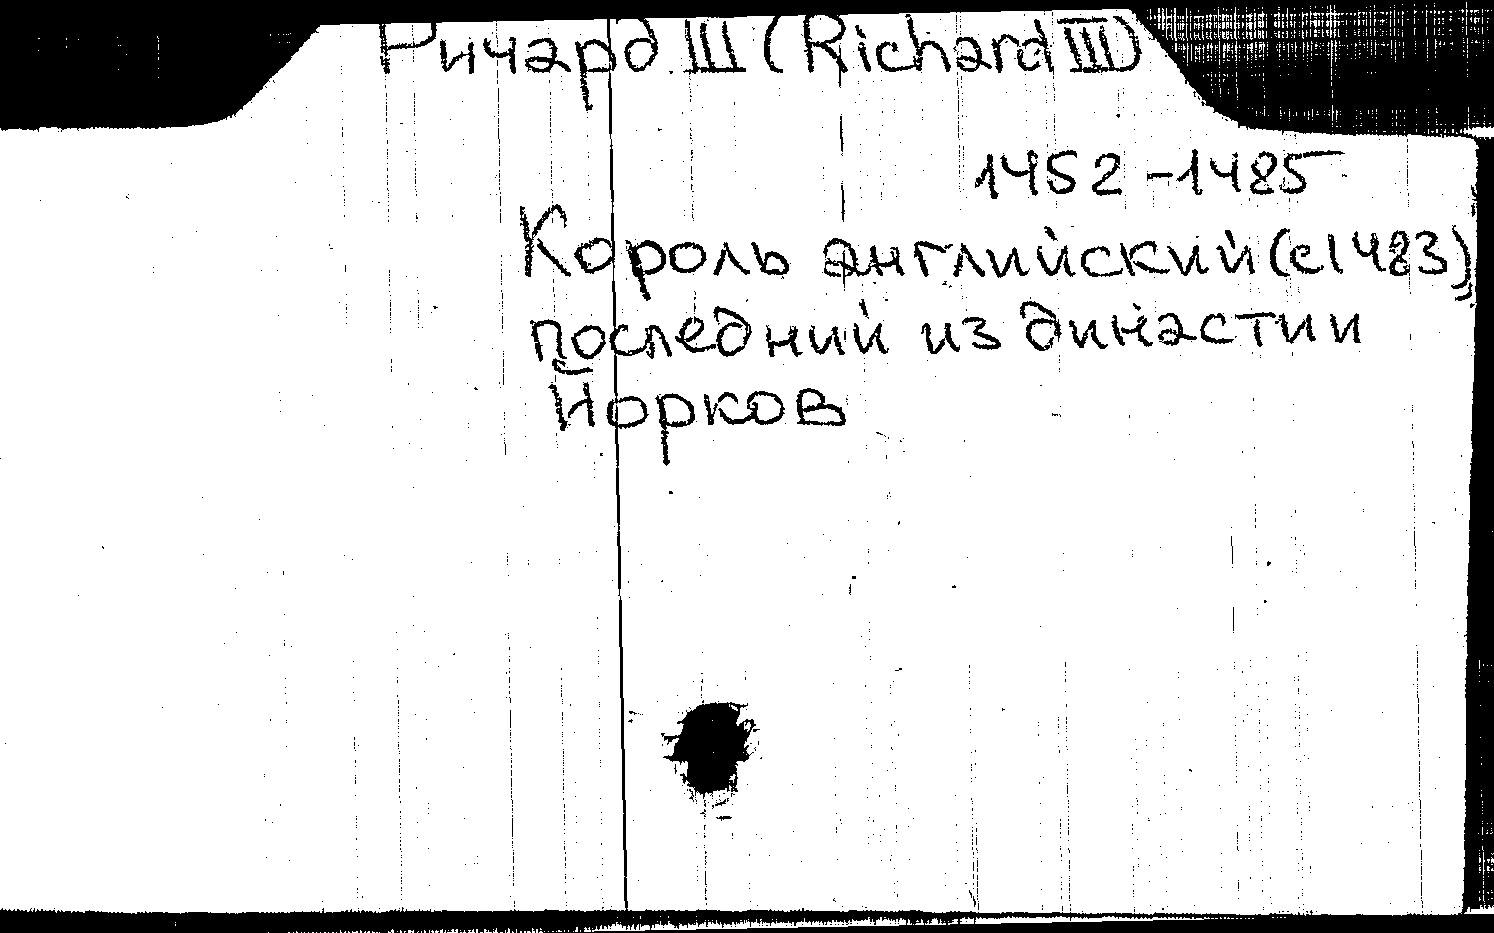 Ричард III (Richard III)
1452-1485
Король английский (с 1483),
последний из династии
Йорков